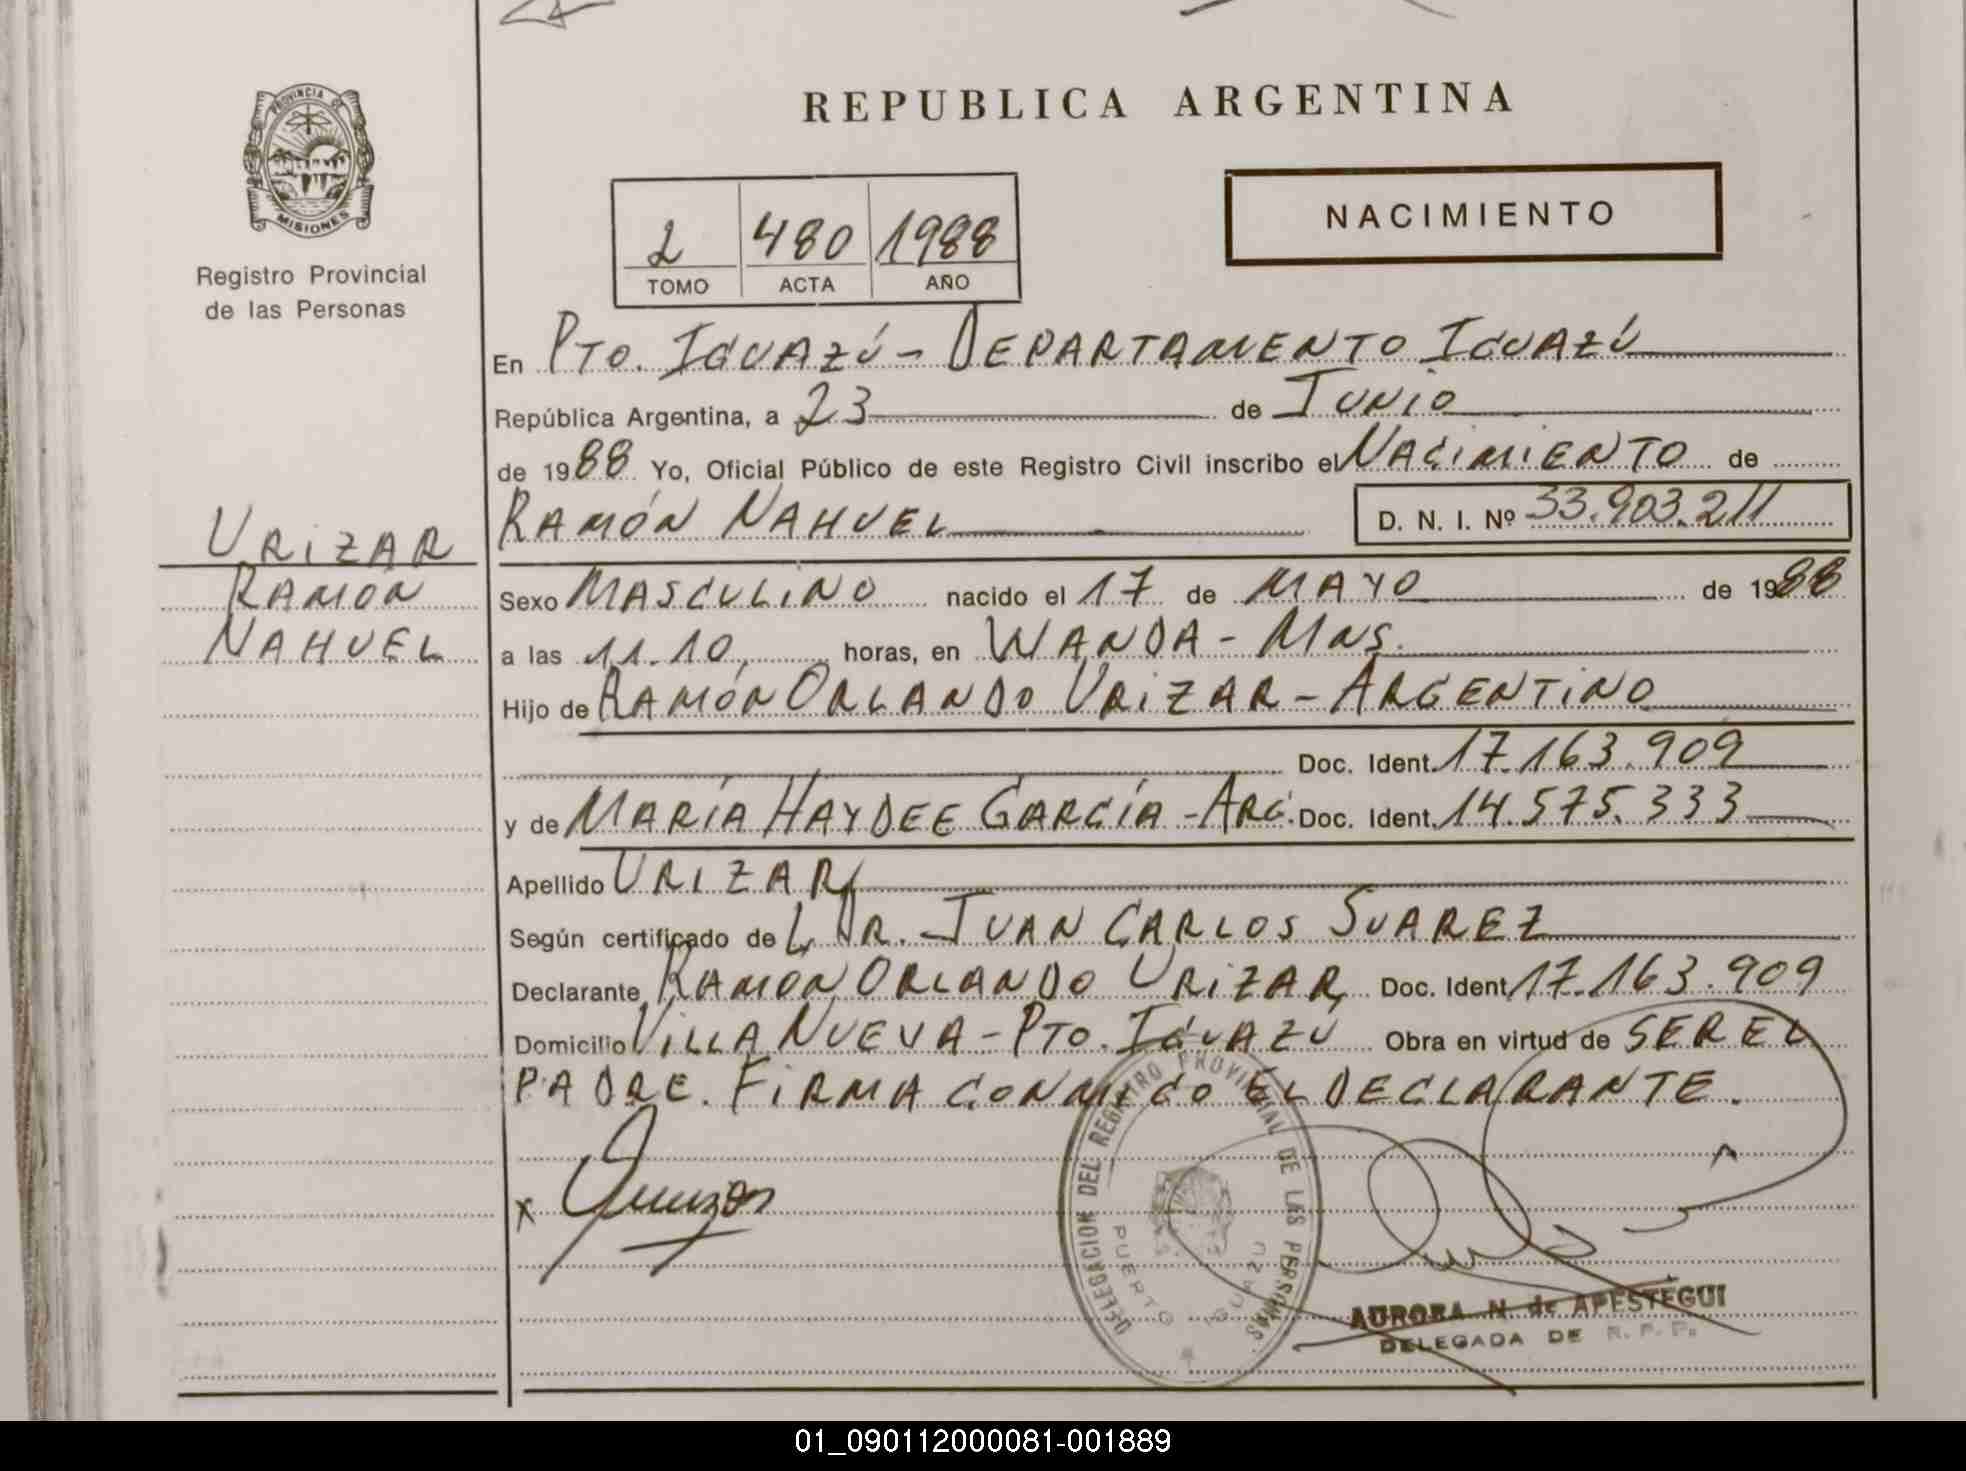 PROVINCIA DE
MISIONES
Registro Provincial
de las Personas
URIZAR
RAMÓN
NAHUEL
REPUBLICA ARGENTINA
2 480 1988
TOMO ACTA AÑO
NACIMIENTO
En PTO. IGUAZÚ - DEPARTAMENTO IGUAZÚ
República Argentina, a 23 de JUNIO
de 1988 Yo, Oficial Público de este Registro Civil inscribo el NACIMIENTO de
RAMÓN NAHUEL D. N. I. Nº 33.903.211
Sexo MASCULINO nacido el 17 de MAYO de 1988
a las 11.10, horas, en WANDA - MNS.
Hijo de RAMÓN ORLANDO URIZAR - ARGENTINO
Doc. Ident. 17.163.909
y de MARÍA HAYDEE GARCÍA - ARG. Doc. Ident. 14.575.333
Apellido URIZAR
Según certificado de L DR. JUAN CARLOS SUAREZ
Declarante RAMON ORLANDO URIZAR Doc. Ident 17.163.909
Domicilio VILLA NUEVA - PTO. IGUAZÚ Obra en virtud de SER EL
PADRE. FIRMA CONMIGO EL DECLARANTE.
x
DELEGACION DEL REGISTRO PROVINCIAL DE LAS PERSONAS
PUERTO IGUAZU
AURORA N. de APESTEGUI
DELEGADA DE R. P. P.
01_090112000081-001889